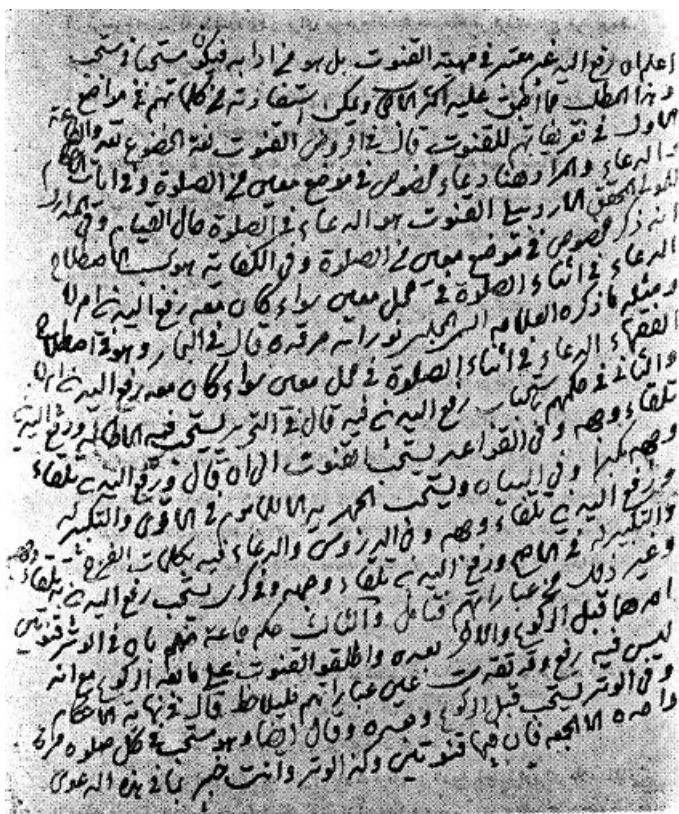 اعلم ان رفع اليد غير معتبر في مهية القنوت بل هو من ادابه فيكون مستحبا في مستحب
وهذا المطلب مما اطبق عليه اكثر الاصحاب ويمكن استفادته من كلماتهم في مواضع
الاول في تعريفاتهم للقنوت قال في الروض القنوت لغة الخضوع لله والطاعة
والدعاء والمراد هنا دعاء مخصوص في موضع معين من الصلوة وفي ايات الاحكام
للمولى المحقق الاردبيلي القنوت هو الدعاء في الصلوة حال القيام وفي المدارك
انه ذكر مخصوص في موضع معين من الصلوة وفي الكفاية هو بحسب الاصطلاح
الدعاء في اثناء الصلوة في محل معين سواء كان معه رفع اليدين ام لا
ومثله ما ذكره العلامة المجلسي نور الله مرقده قال في البحار وهو في اصطلاح
الفقهاء الدعاء في اثناء الصلوة في محل معين سواء كان معه رفع اليدين ام لا
والثاني في حكمهم باستحباب رفع اليدين فيه قال في التحرير يستحب فيه ورفع اليدين
تلقاء وجهه وفي القواعد يستحب القنوت الى ان قال ورفع اليدين تلقاء
وجهه مكبرا وفي البيان ويستحب الجهر به الا للماموم في الاقوى والتكبير له
ورفع اليدين تلقاء وجهه وفي الدروس والدعاء فيه بكلمات الفرج
والتكبير له في الاصح ورفع اليدين تلقاء وجهه وفي كرى يستحب رفع اليدين به تلقاء وجهه
وغير ذلك من عباراتهم فتامل والثالث حكم جماعة منهم بان في الوتر قنوتين
احدهما قبل الركوع والاخر بعده واطلقوا القنوت على ما بعد الركوع مع انه
ليس فيه رفع وقد نقلت على عباراتهم فليلاحظ قال في نهاية الاحكام
وفي الوتر يستحب قبل الركوع وبعده وقال ايضا وهو مستحب في كل صلوة مرة
واحدة الا الجمعة فان فيها قنوتين وكذا الوتر وانت خبير بما في هذه الدعوى